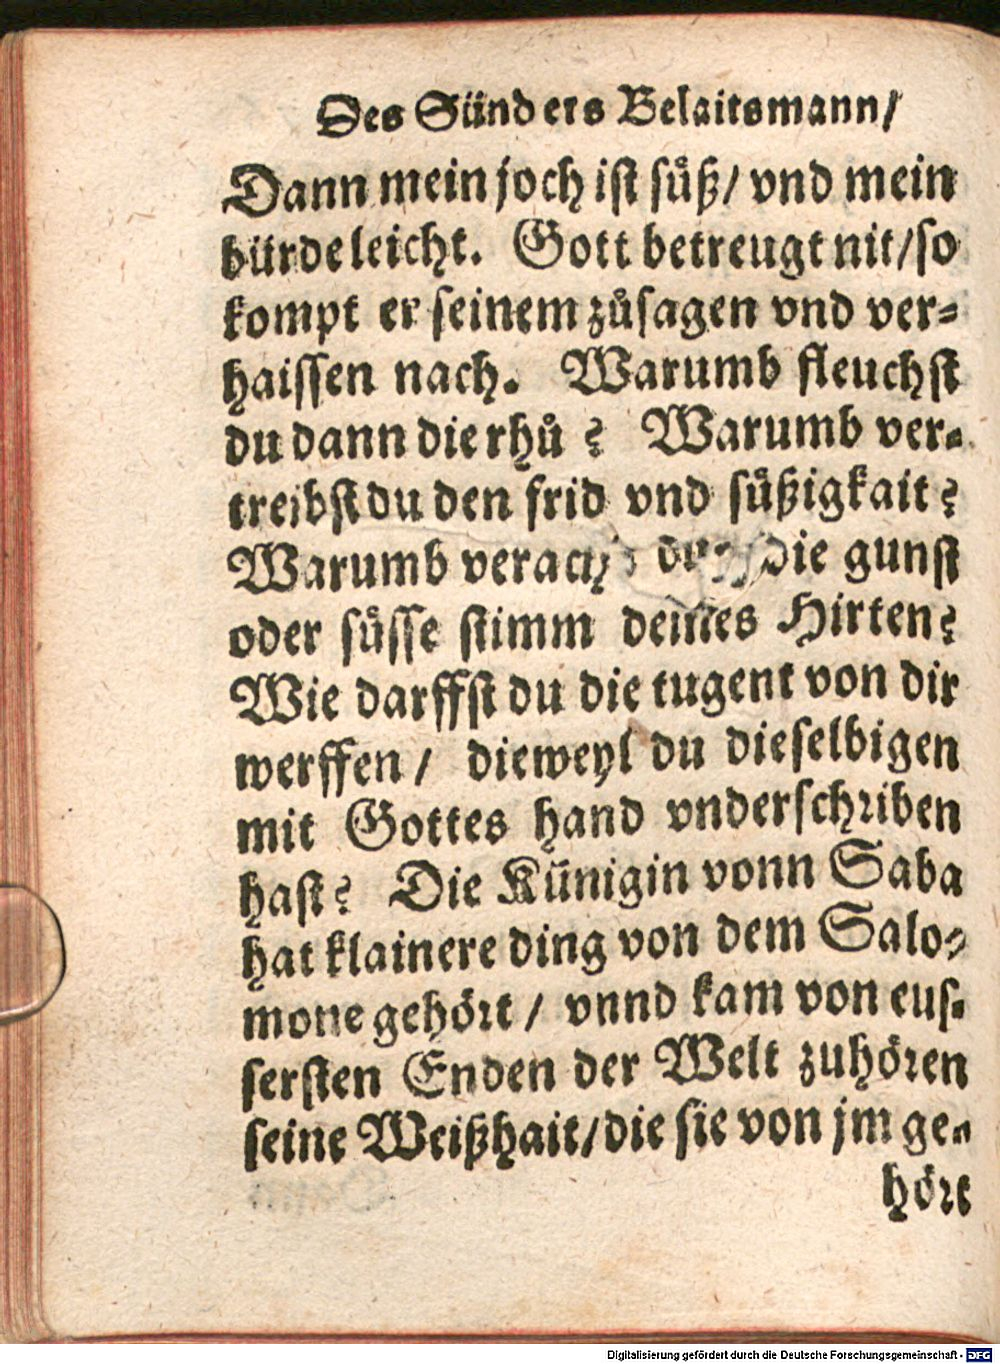 Des Sünders Belaitsmann/
Dann mein joch ist sůß/ vnd mein
bürde leicht. Gott betreugt nit/so
kompt er seinem zůsagen vnd ver-
haissen nach. Warumb fleuchst
du dann die rhů? Warumb ver-
treibst du den frid vnd sůßigkait?
Warumb die gunst
oder sůsse stimm deines Hirten?
Wie darffst du die tugent von dir
werffen/ dieweyl du dieselbigen
mit Gottes hand vnderschriben
hast? Die Künigin vonn Saba
hat klainere ding von dem Salo-
mone gehört/ vnnd kam von eus-
sersten Enden der Welt zuhören
seine Weißhait/die sie von jm ge-
hört
Digitalisierung gefördert durch die Deutsche Forschungsgemeinschaft - DFG